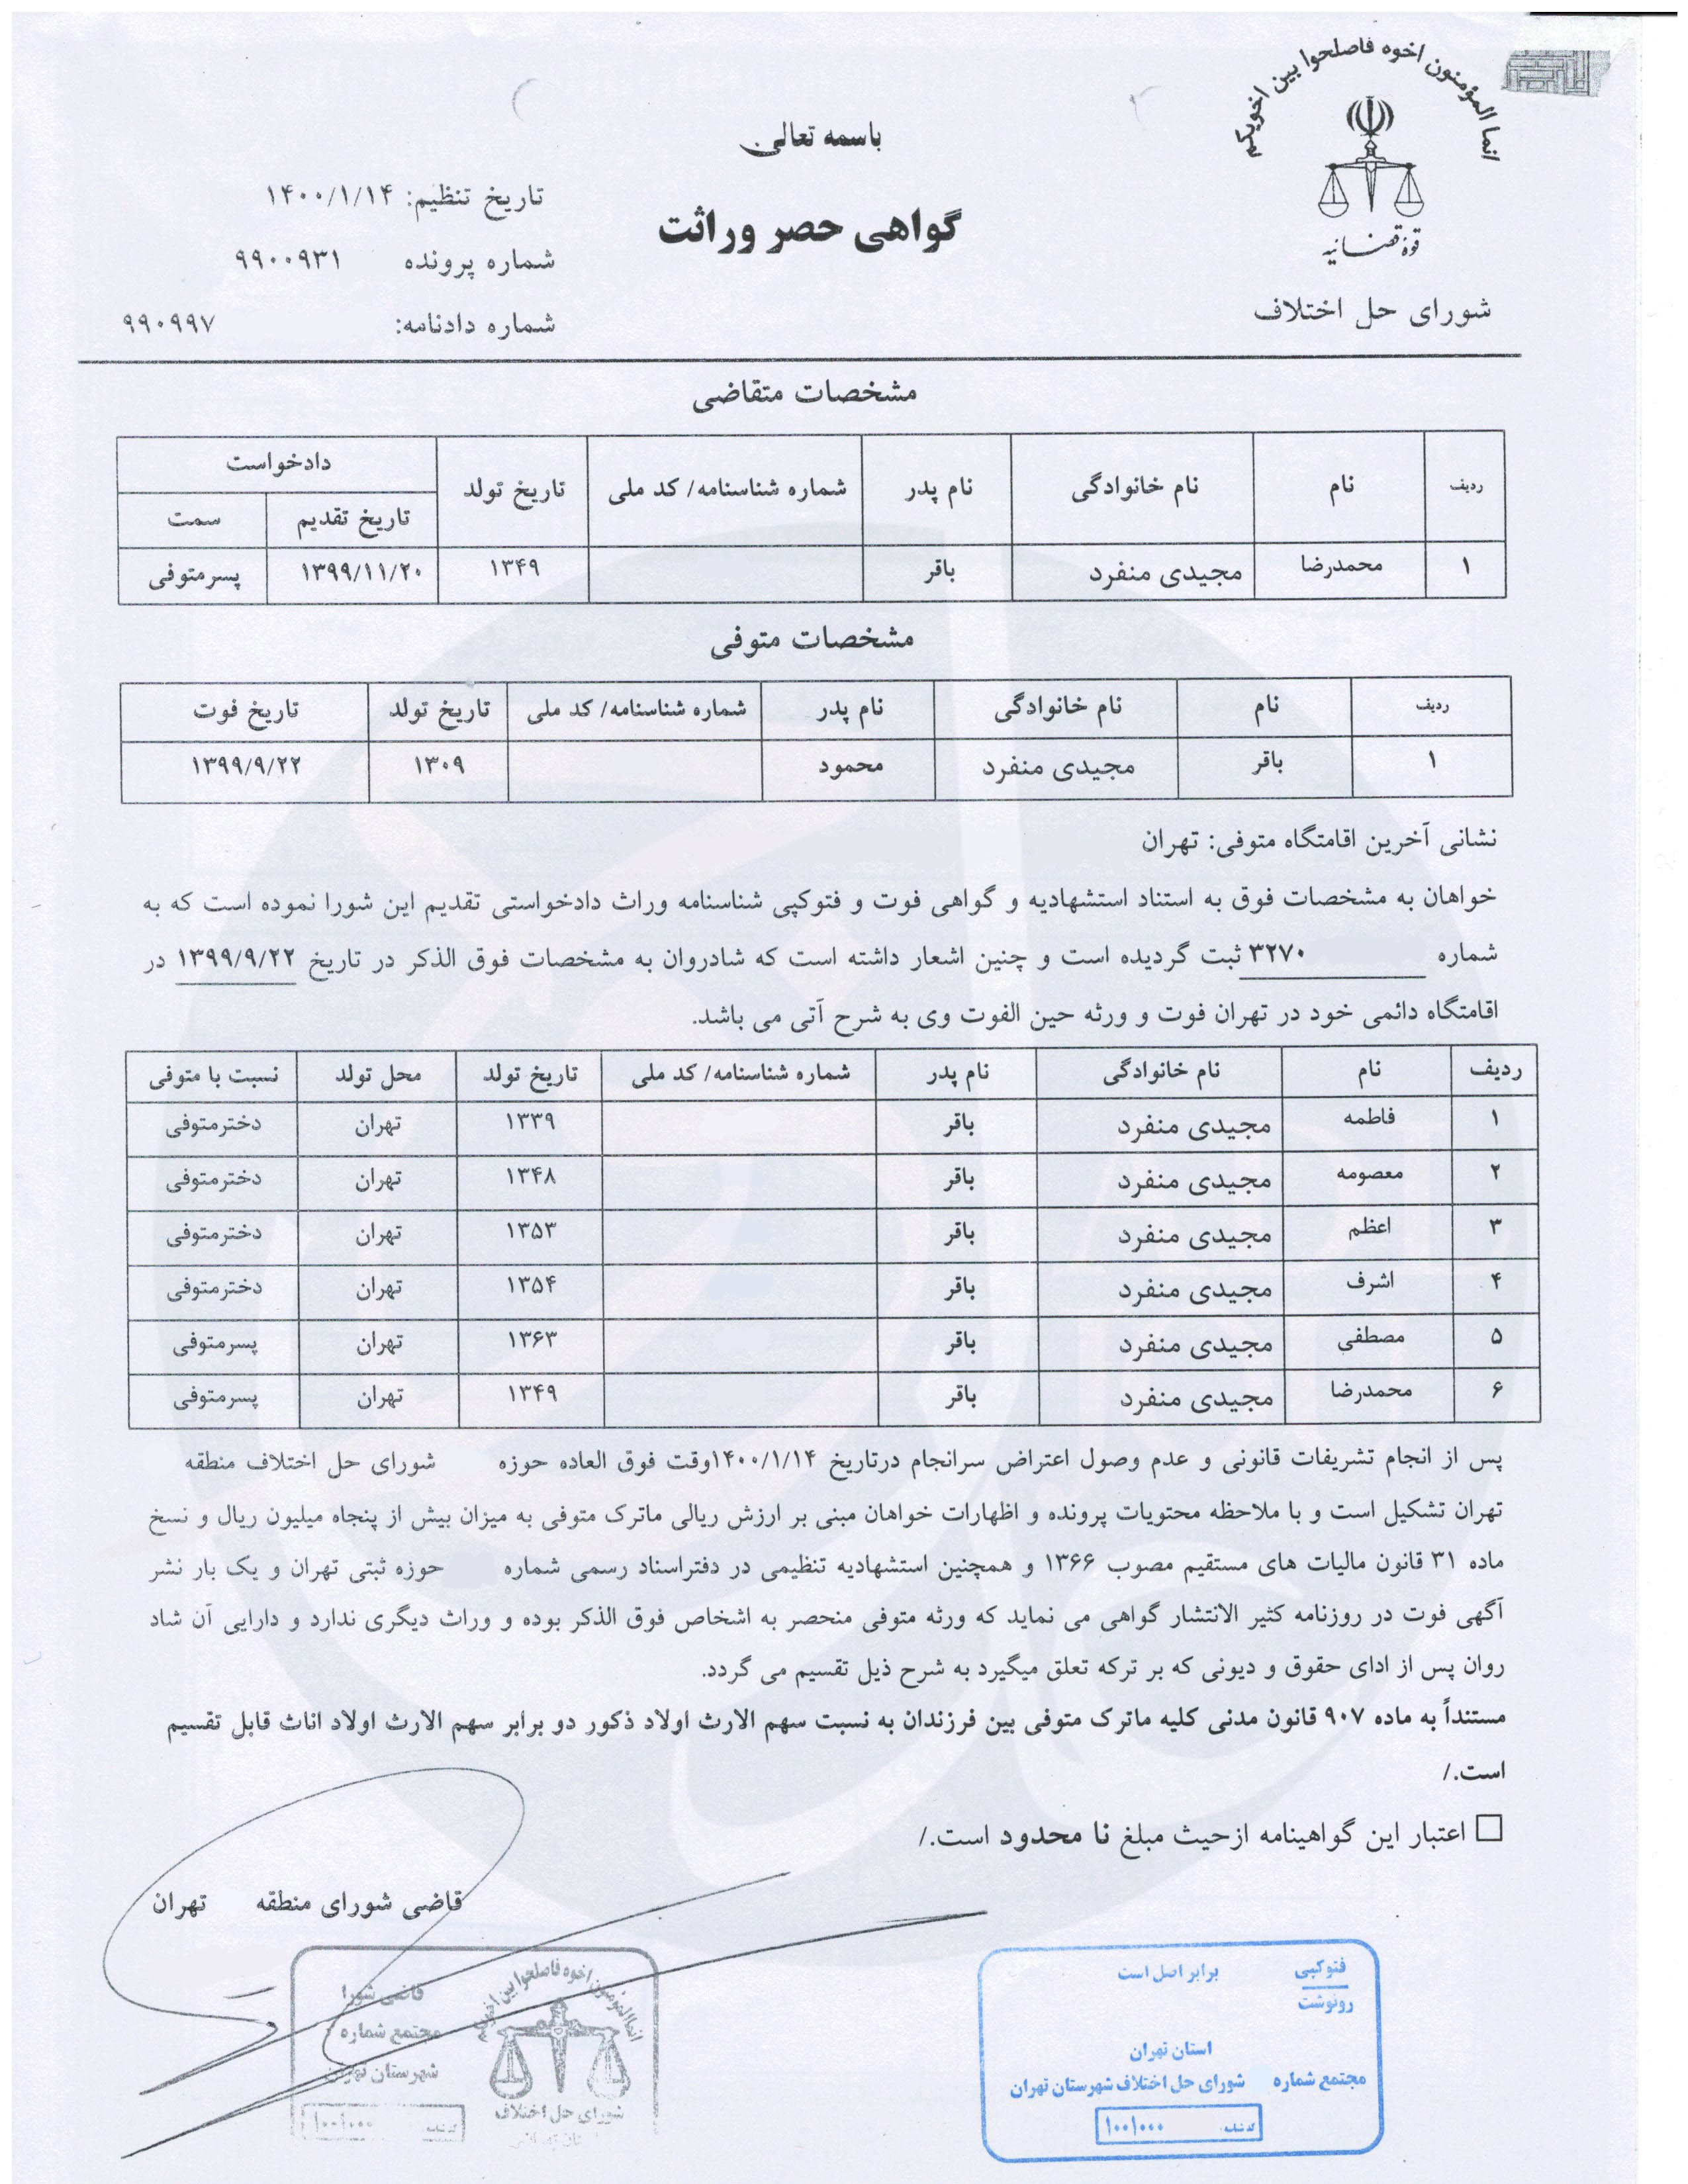 انما المؤمنون اخوه فاصلحوا بین اخویکم
قوه قضائیه
شورای حل اختلاف
باسمه تعالی
گواهی حصر وراثت
تاریخ تنظیم: ۱۴۰۰/۱/۱۴
شماره پرونده ۹۹۰۰۹۳۱
شماره دادنامه: ۹۹۰۹۹۷
مشخصات متقاضی
ردیف نام نام خانوادگی نام پدر شماره شناسنامه/ کد ملی تاریخ تولد دادخواست
تاریخ تقدیم سمت
۱ محمدرضا مجیدی منفرد باقر ۱۳۴۹ ۱۳۹۹/۱۱/۲۰ پسرمتوفی
مشخصات متوفی
ردیف نام نام خانوادگی نام پدر شماره شناسنامه/ کد ملی تاریخ تولد تاریخ فوت
۱ باقر مجیدی منفرد محمود ۱۳۰۹ ۱۳۹۹/۹/۲۲
نشانی آخرین اقامتگاه متوفی: تهران
خواهان به مشخصات فوق به استناد استشهادیه و گواهی فوت و فتوکپی شناسنامه وراث دادخواستی تقدیم این شورا نموده است که به
شماره ۳۲۷۰ ثبت گردیده است و چنین اشعار داشته است که شادروان به مشخصات فوق الذکر در تاریخ ۱۳۹۹/۹/۲۲ در
اقامتگاه دائمی خود در تهران فوت و ورثه حین الفوت وی به شرح آتی می باشد.
ردیف نام نام خانوادگی نام پدر شماره شناسنامه/ کد ملی تاریخ تولد محل تولد نسبت با متوفی
۱ فاطمه مجیدی منفرد باقر ۱۳۳۹ تهران دخترمتوفی
۲ معصومه مجیدی منفرد باقر ۱۳۴۸ تهران دخترمتوفی
۳ اعظم مجیدی منفرد باقر ۱۳۵۳ تهران دخترمتوفی
۴ اشرف مجیدی منفرد باقر ۱۳۵۴ تهران دخترمتوفی
۵ مصطفی مجیدی منفرد باقر ۱۳۶۳ تهران پسرمتوفی
۶ محمدرضا مجیدی منفرد باقر ۱۳۴۹ تهران پسرمتوفی
پس از انجام تشریفات قانونی و عدم وصول اعتراض سرانجام درتاریخ ۱۴۰۰/۱/۱۴وقت فوق العاده حوزه شورای حل اختلاف منطقه
تهران تشکیل است و با ملاحظه محتویات پرونده و اظهارات خواهان مبنی بر ارزش ریالی ماترک متوفی به میزان بیش از پنجاه میلیون ریال و نسخ
ماده ۳۱ قانون مالیات های مستقیم مصوب ۱۳۶۶ و همچنین استشهادیه تنظیمی در دفتراسناد رسمی شماره حوزه ثبتی تهران و یک بار نشر
آگهی فوت در روزنامه کثیر الانتشار گواهی می نماید که ورثه متوفی منحصر به اشخاص فوق الذکر بوده و وراث دیگری ندارد و دارایی آن شاد
روان پس از ادای حقوق و دیونی که بر ترکه تعلق میگیرد به شرح ذیل تقسیم می گردد.
مستنداً به ماده ۹۰۷ قانون مدنی کلیه ماترک متوفی بین فرزندان به نسبت سهم الارث اولاد ذکور دو برابر سهم الارث اولاد اناث قابل تقسیم
است./
اعتبار این گواهینامه ازحیث مبلغ نا محدود است./
قاضی شورای منطقه تهران
فتوکپی برابر اصل است
رونوشت
استان تهران
مجتمع شماره شورای حل اختلاف شهرستان تهران
۱۰۰۱۰۰۰
قاضی شورا
مجتمع شماره
شهرستان تهران
انما المؤمنون اخوه فاصلحوا بین
شورای حل اختلاف
۱۰۰۱۰۰۰